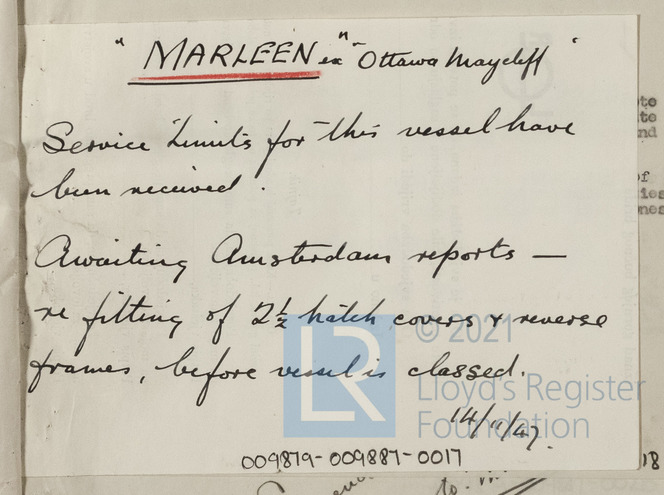 "MARLEEN" ex "Ottawa Maycliff"
Service Limits for this vessel have
been received.
Awaiting Amsterdam reports —
re fitting of 2½ hatch covers & reverse
frames, before vessel is classed.
14/11/47.
LR
© 2021
Lloyd's Register
Foundation
009879-009887-0017
to
te
nd
of
ies
nes
18